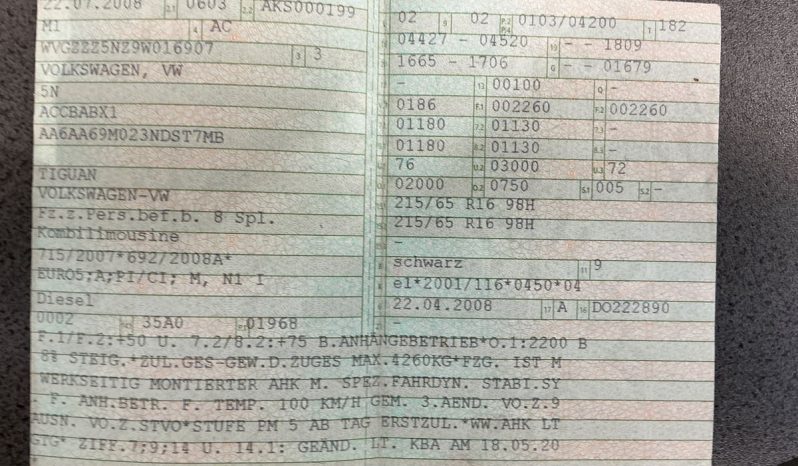 22.07.2008 2.1 0603 2.2 AKS000199
M1 4 AC
WVGZZZ5NZ9W016907 3 3
VOLKSWAGEN, VW
5N
ACCBABX1
AA6AA69M023NDST7MB
TIGUAN
VOLKSWAGEN-VW
Fz.z.Pers.bef.b. 8 Spl.
Kombilimousine
715/2007*692/2008A*
EURO5;A;PI/CI; M, N1 I
Diesel
0002 35A0 01968
02 9 02 P.2 P.4 0103/04200 T 182
04427 - 04520 19 - - 1809
1665 - 1706 G - - 01679
- 13 00100 Q -
0186 F.1 002260 F.2 002260
01180 7.2 01130 7.3 -
01180 8.2 01130 8.3 -
76 U.2 03000 U.3 72
02000 O.2 0750 S.1 005 S.2 -
215/65 R16 98H
215/65 R16 98H
-
schwarz 11 9
e1*2001/116*0450*04
22.04.2008 17 A 16 DO222890
-
F.1/F.2:+50 U. 7.2/8.2:+75 B.ANHÄNGEBETRIEB*O.1:2200 B
8% STEIG.*ZUL.GES-GEW.D.ZUGES MAX.4260KG*FZG. IST M
WERKSEITIG MONTIERTER AHK M. SPEZ.FAHRDYN. STABI.SY
F. ANH.BETR. F. TEMP. 100 KM/H GEM. 3.AEND. VO.Z.9
AUSN. VO.Z.STVO*STUFE PM 5 AB TAG ERSTZUL.*WW.AHK LT
GTG* ZIFF.7;9;14 U. 14.1: GEÄND. LT. KBA AM 18.05.20